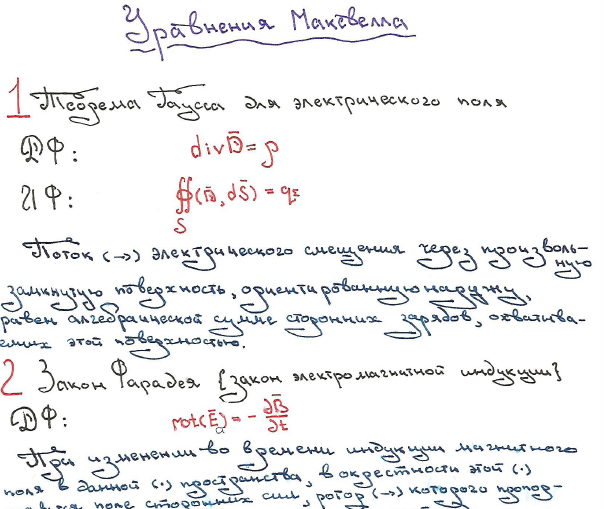 Уравнения Максвелла
1 Теорема Гаусса для электрического поля
ДФ: div D̄ = ρ
ИФ: ∯(D̄, dS̄) = qΣ
S
Поток (→) электрического смещения через произволь-
ную
замкнутую поверхность, ориентированную наружу,
равен алгебраической сумме сторонних зарядов, охватыва-
емых этой поверхностью.
2 Закон Фарадея {закон электромагнитной индукции}
ДФ: rot(Ē) = - ∂B̄/∂t
При изменении во времени индукции магнитного
поля в данной (·) пространства, в окрестности этой (·)
поле сторонних сил, ротор (→) которого пропор-